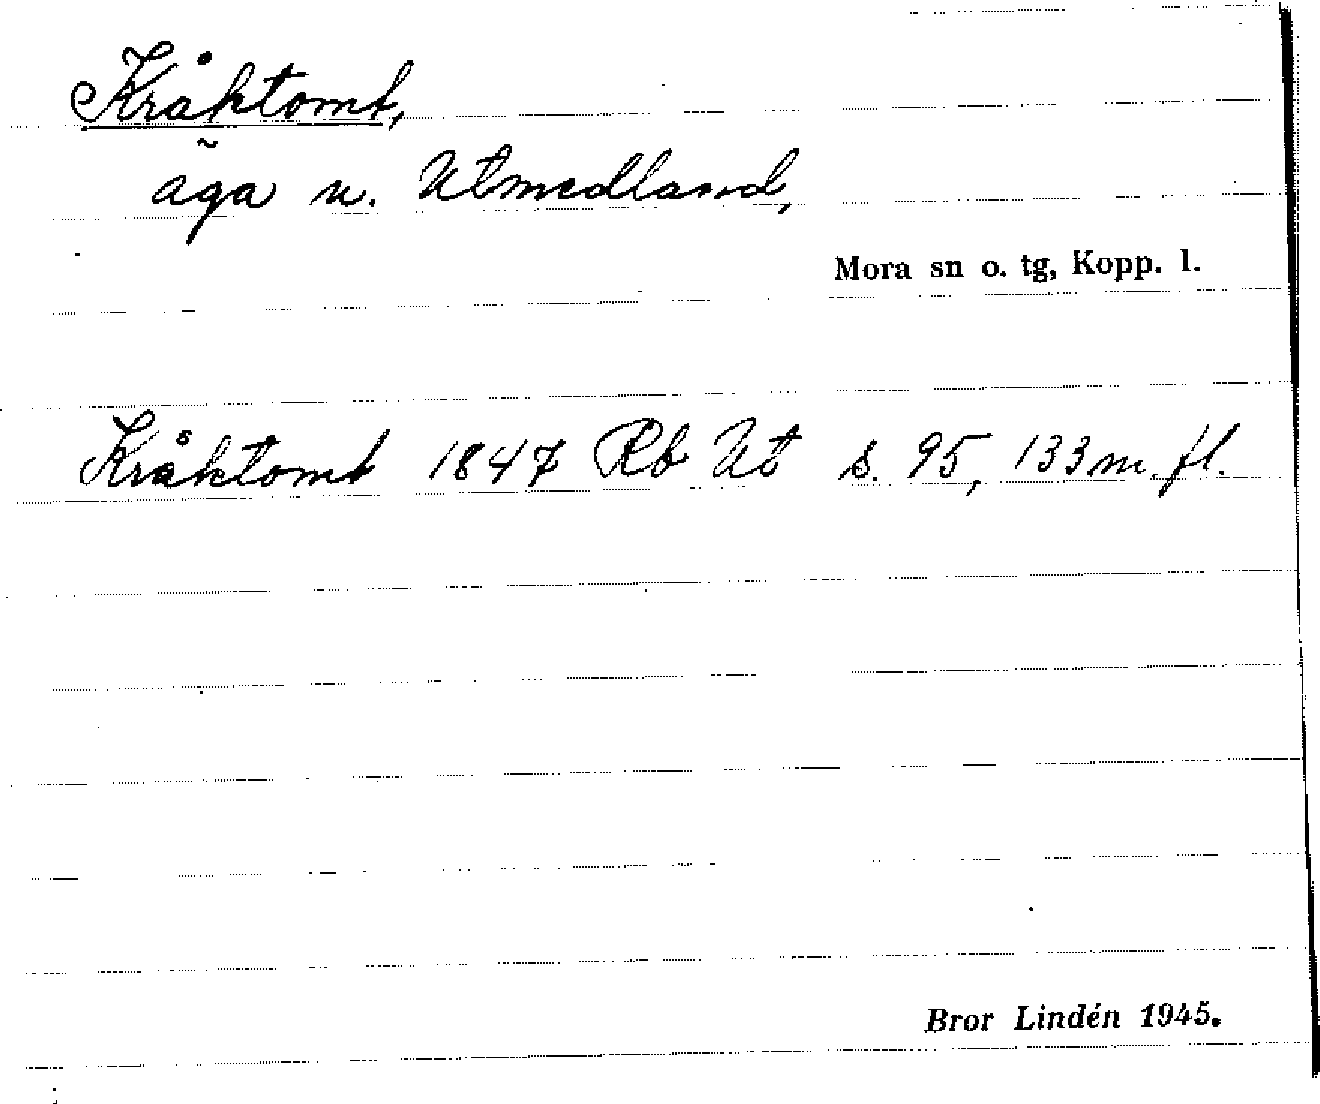 Kråktomt,
äga u. Utmedland,
Mora sn o. tg, Kopp. l.
Kråktomt 1847 Rb Ut s. 95, 133 m. fl.
Bror Lindén 1945.